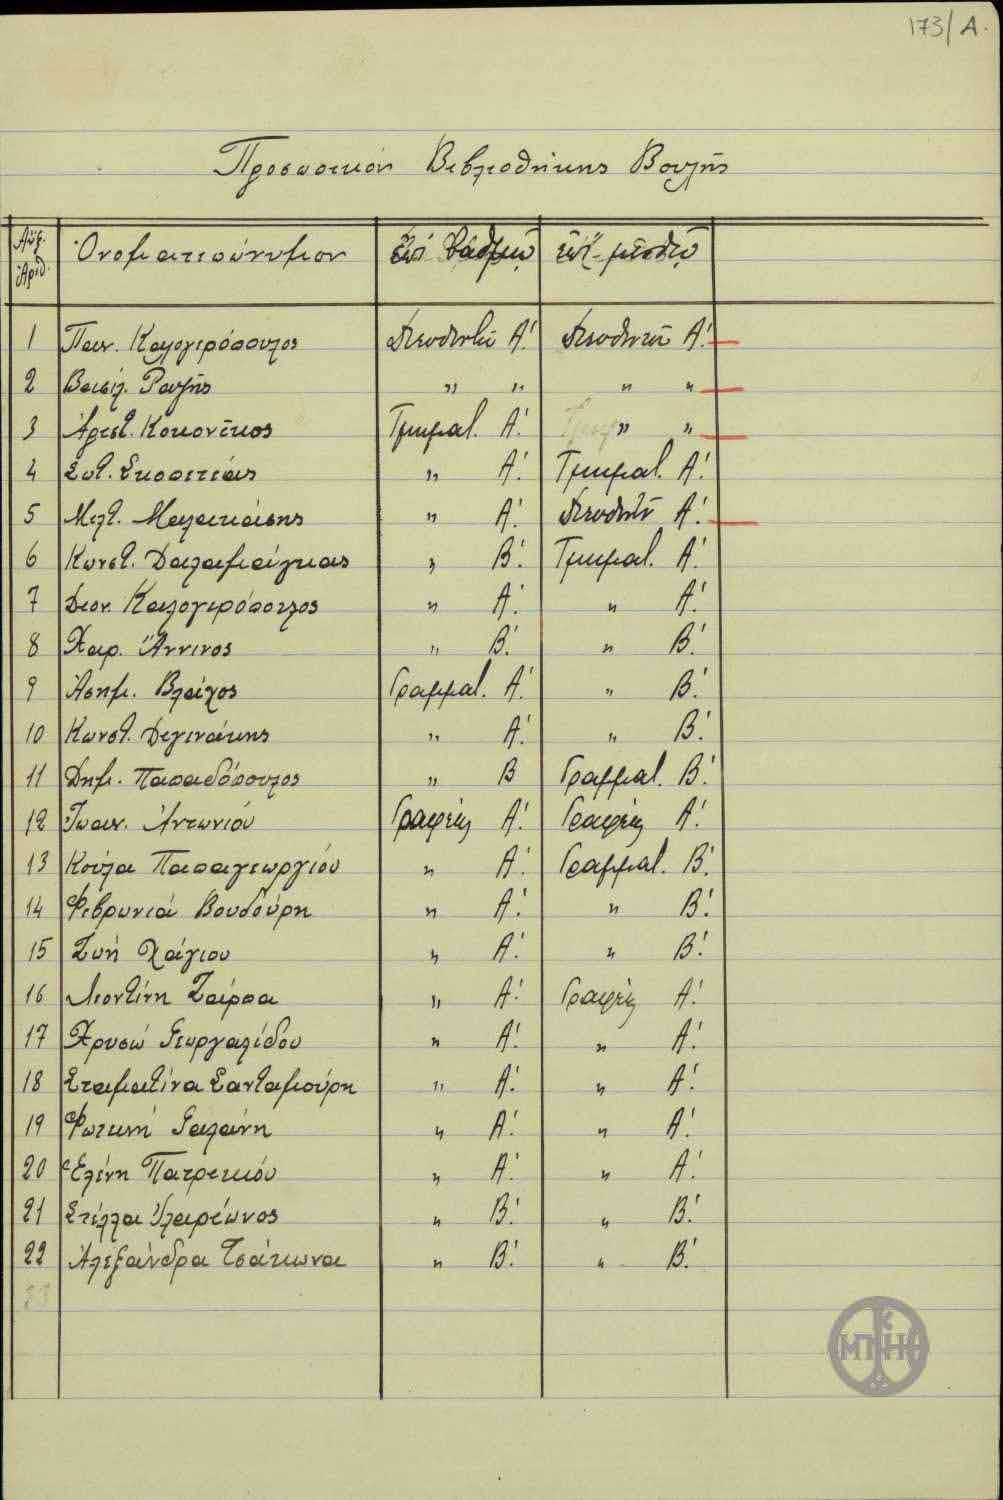 173/Α.
Προσωπικόν Βιβλιοθήκης Βουλῆς
Αὔξ. Ἀριθ. Ὀνοματεπώνυμον ἐπὶ βαθμῷ ἐπὶ μισθῷ
1 Παν. Καλογερόπουλος Διευθυντοῦ Α! Διευθυντοῦ Α!
2 Βασιλ. Ῥαυλῆς " " " "
3 Ἀριστ. Κοκονίκος Τμηματ. Α! " "
4 Σωτ. Σκοπετέας " Α! Τμηματ. Α!
5 Μιλτ. Μαλακάσης " Α! Διευθυντοῦ Α!
6 Κωνστ. Δαλαμάγκας " Β! Τμηματ. Α!
7 Διον. Καλογερόπουλος " Α! " Α!
8 Χαρ. Ἄννινος " Β! " Β!
9 Ἀσημ. Βλάχος Γραμματ. Α! " Β!
10 Κωνστ. Δεγινάκης " Α! " Β!
11 Δημ. Παπαδόπουλος " Β Γραμματ. Β!
12 Ἰωαν. Ἀντωνίου Γραφεὺς Α! Γραφεὺς Α!
13 Κούλα Παπαγεωργίου " Α! Γραμματ. Β!
14 Φεβρωνιά Βουδούρη " Α! " Β!
15 Ζωή Χάγιου " Α! " Β!
16 Λεοντίνη Ζάρπα " Α! Γραφεὺς Α!
17 Χρυσώ Γεωργαλίδου " Α! " Α!
18 Σταματίνα Σανταμούρη " Α! " Α!
19 Φωτεινή Γαλάνη " Α! " Α!
20 Ἑλένη Πατρικίου " Α! " Α!
21 Στέλλα Ἰλαρίωνος " Β! " Β!
22 Ἀλεξάνδρα Τσάκωνα " Β! " Β!
23
ΜΠΚΗ